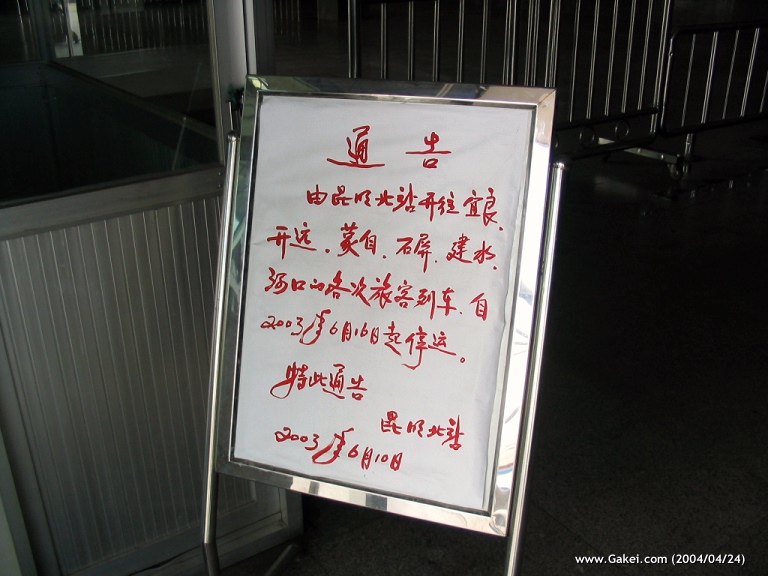 通告
由昆明北站开往宜良、
开远、蒙自、石屏、建水、
河口的各次旅客列车，自
2003年6月16日起停运。
特此通告
昆明北站
2003年6月10日
www.Gakei.com (2004/04/24)